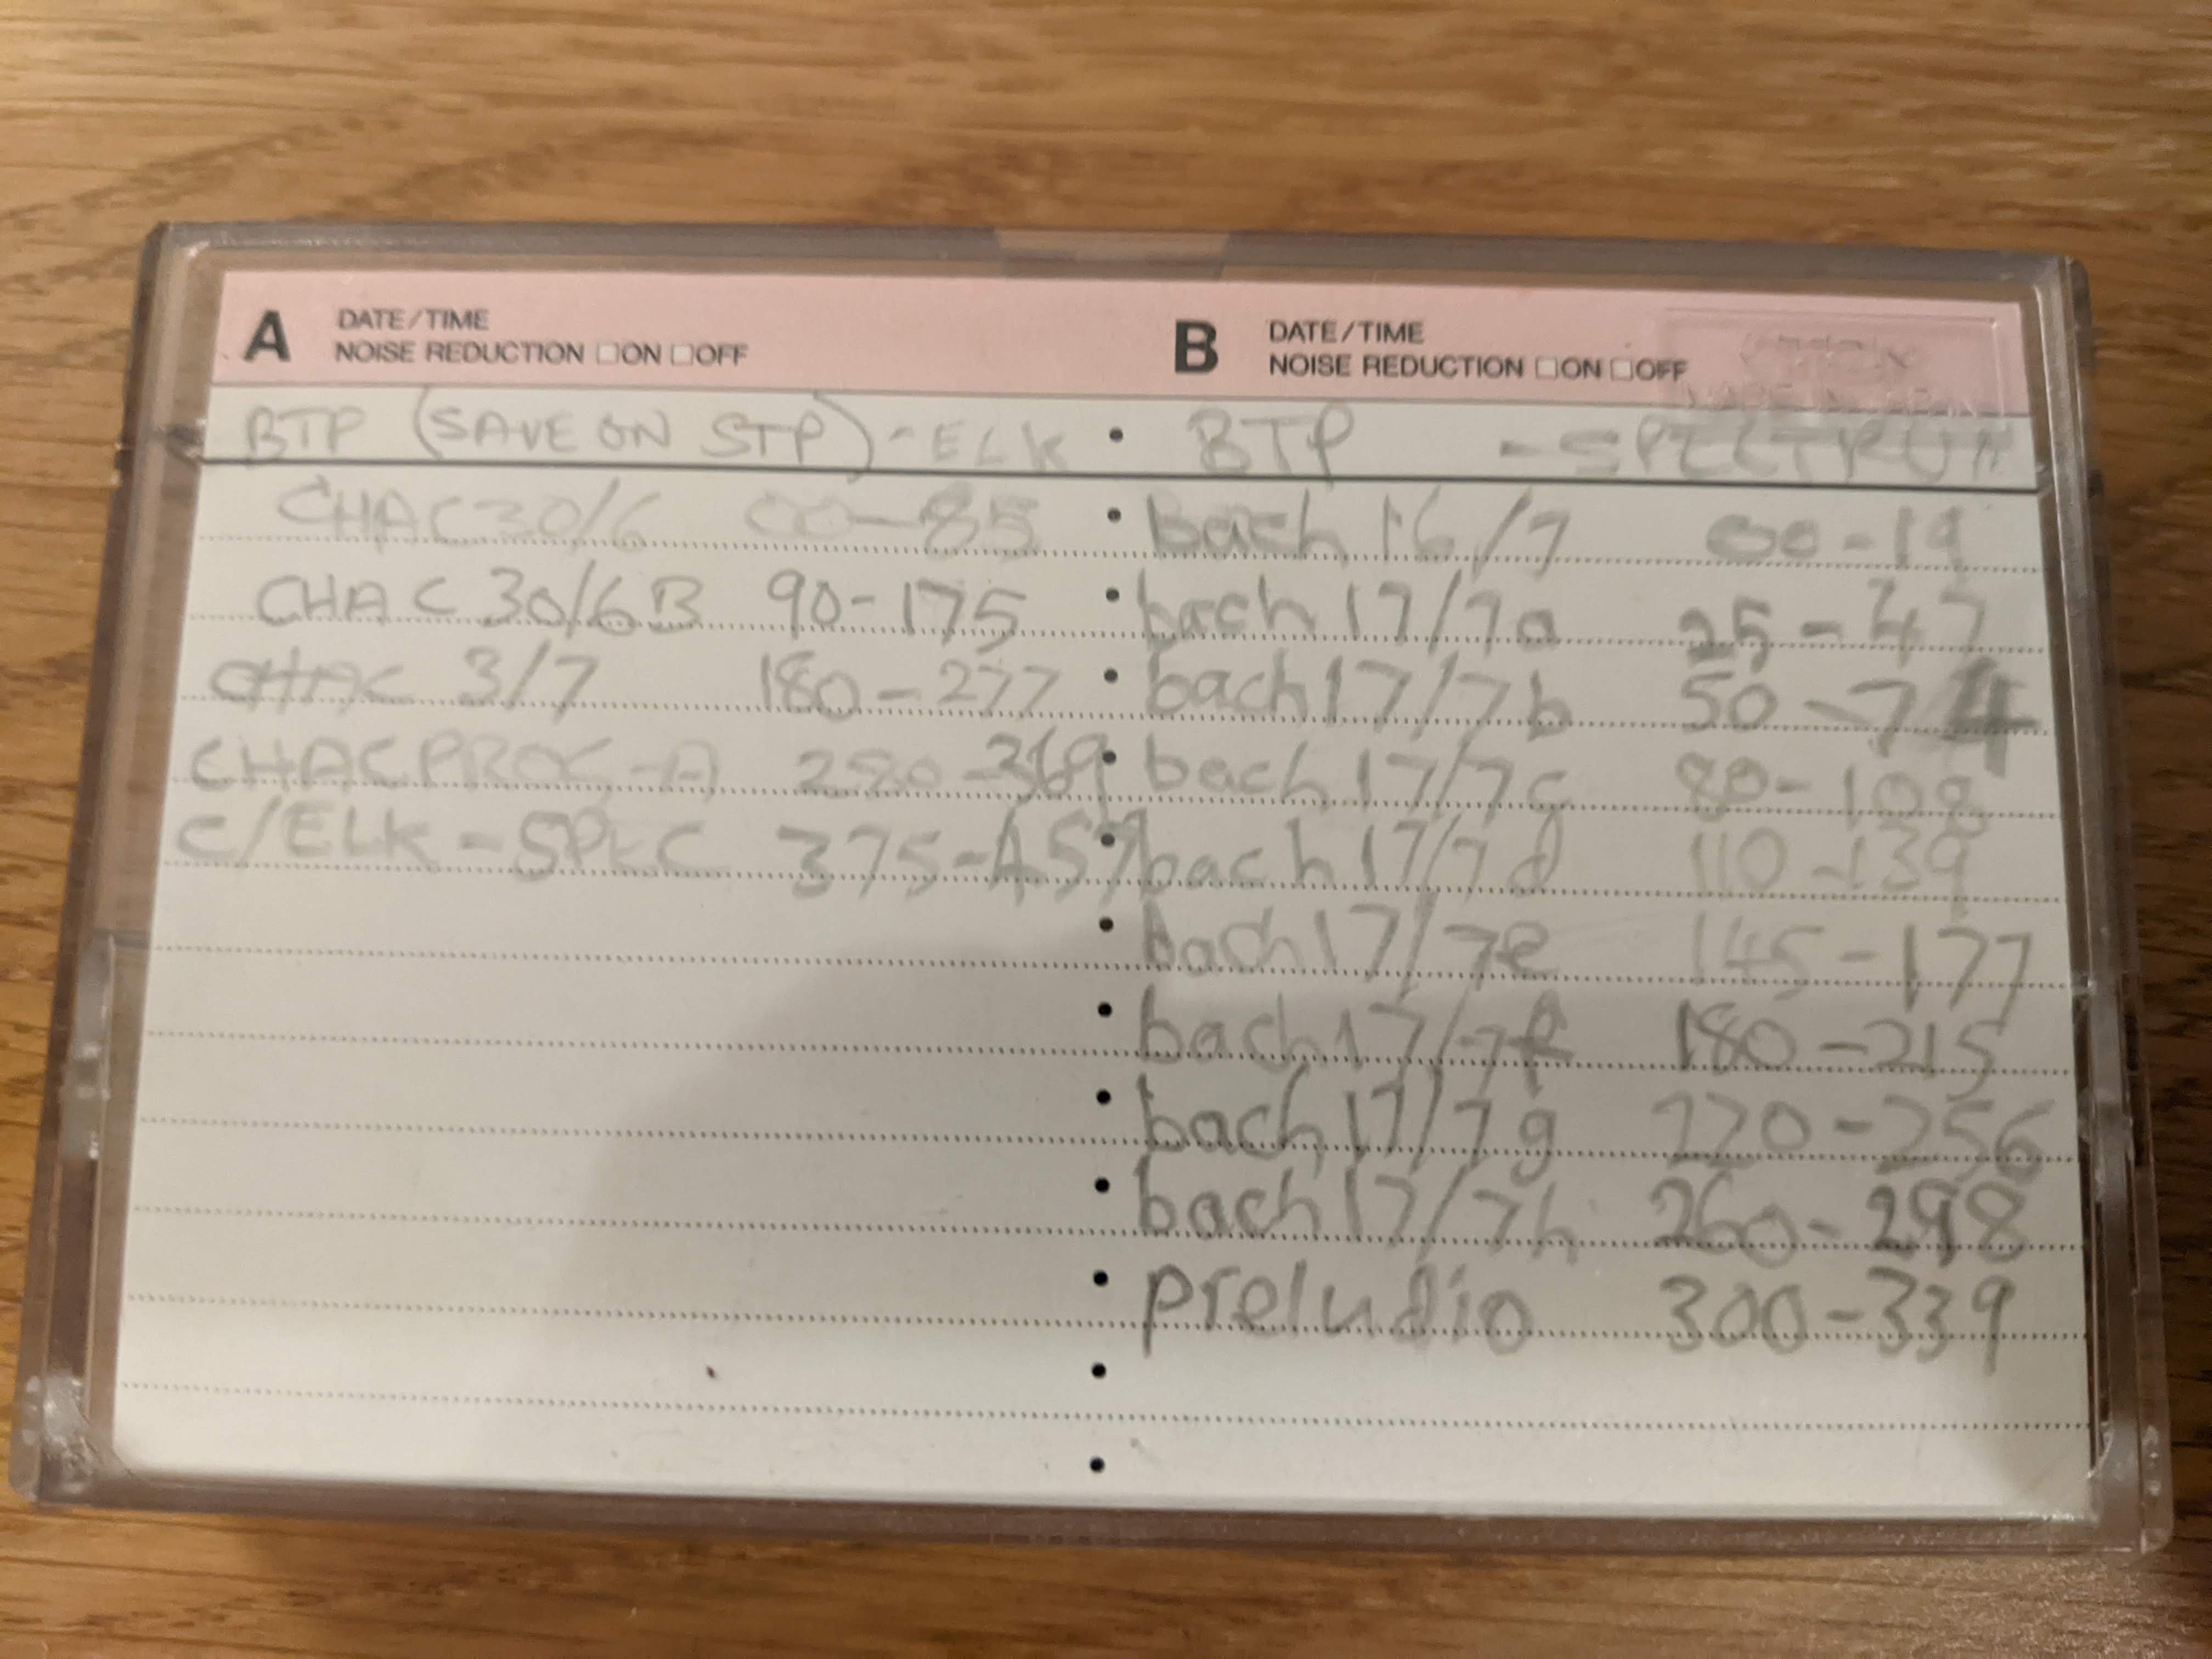 A DATE/TIME
NOISE REDUCTION □ON □OFF
BTP (SAVE ON STP) - ELK
CHAC 30/6 00-85
CHAC 30/6B 90-175
CHAC 3/7 180-277
CHAC PROG-A 280-369
C/ELK-SPEC 375-457
B DATE/TIME
NOISE REDUCTION □ON □OFF
BTP -SPECTRUM
bach 16/7 00-19
bach 17/7a 25-47
bach 17/7b 50-74
bach 17/7c 80-108
bach 17/7d 110-139
bach 17/7e 145-177
bach 17/7f 180-215
bach 17/7g 220-256
bach 17/7h 260-298
preludio 300-339